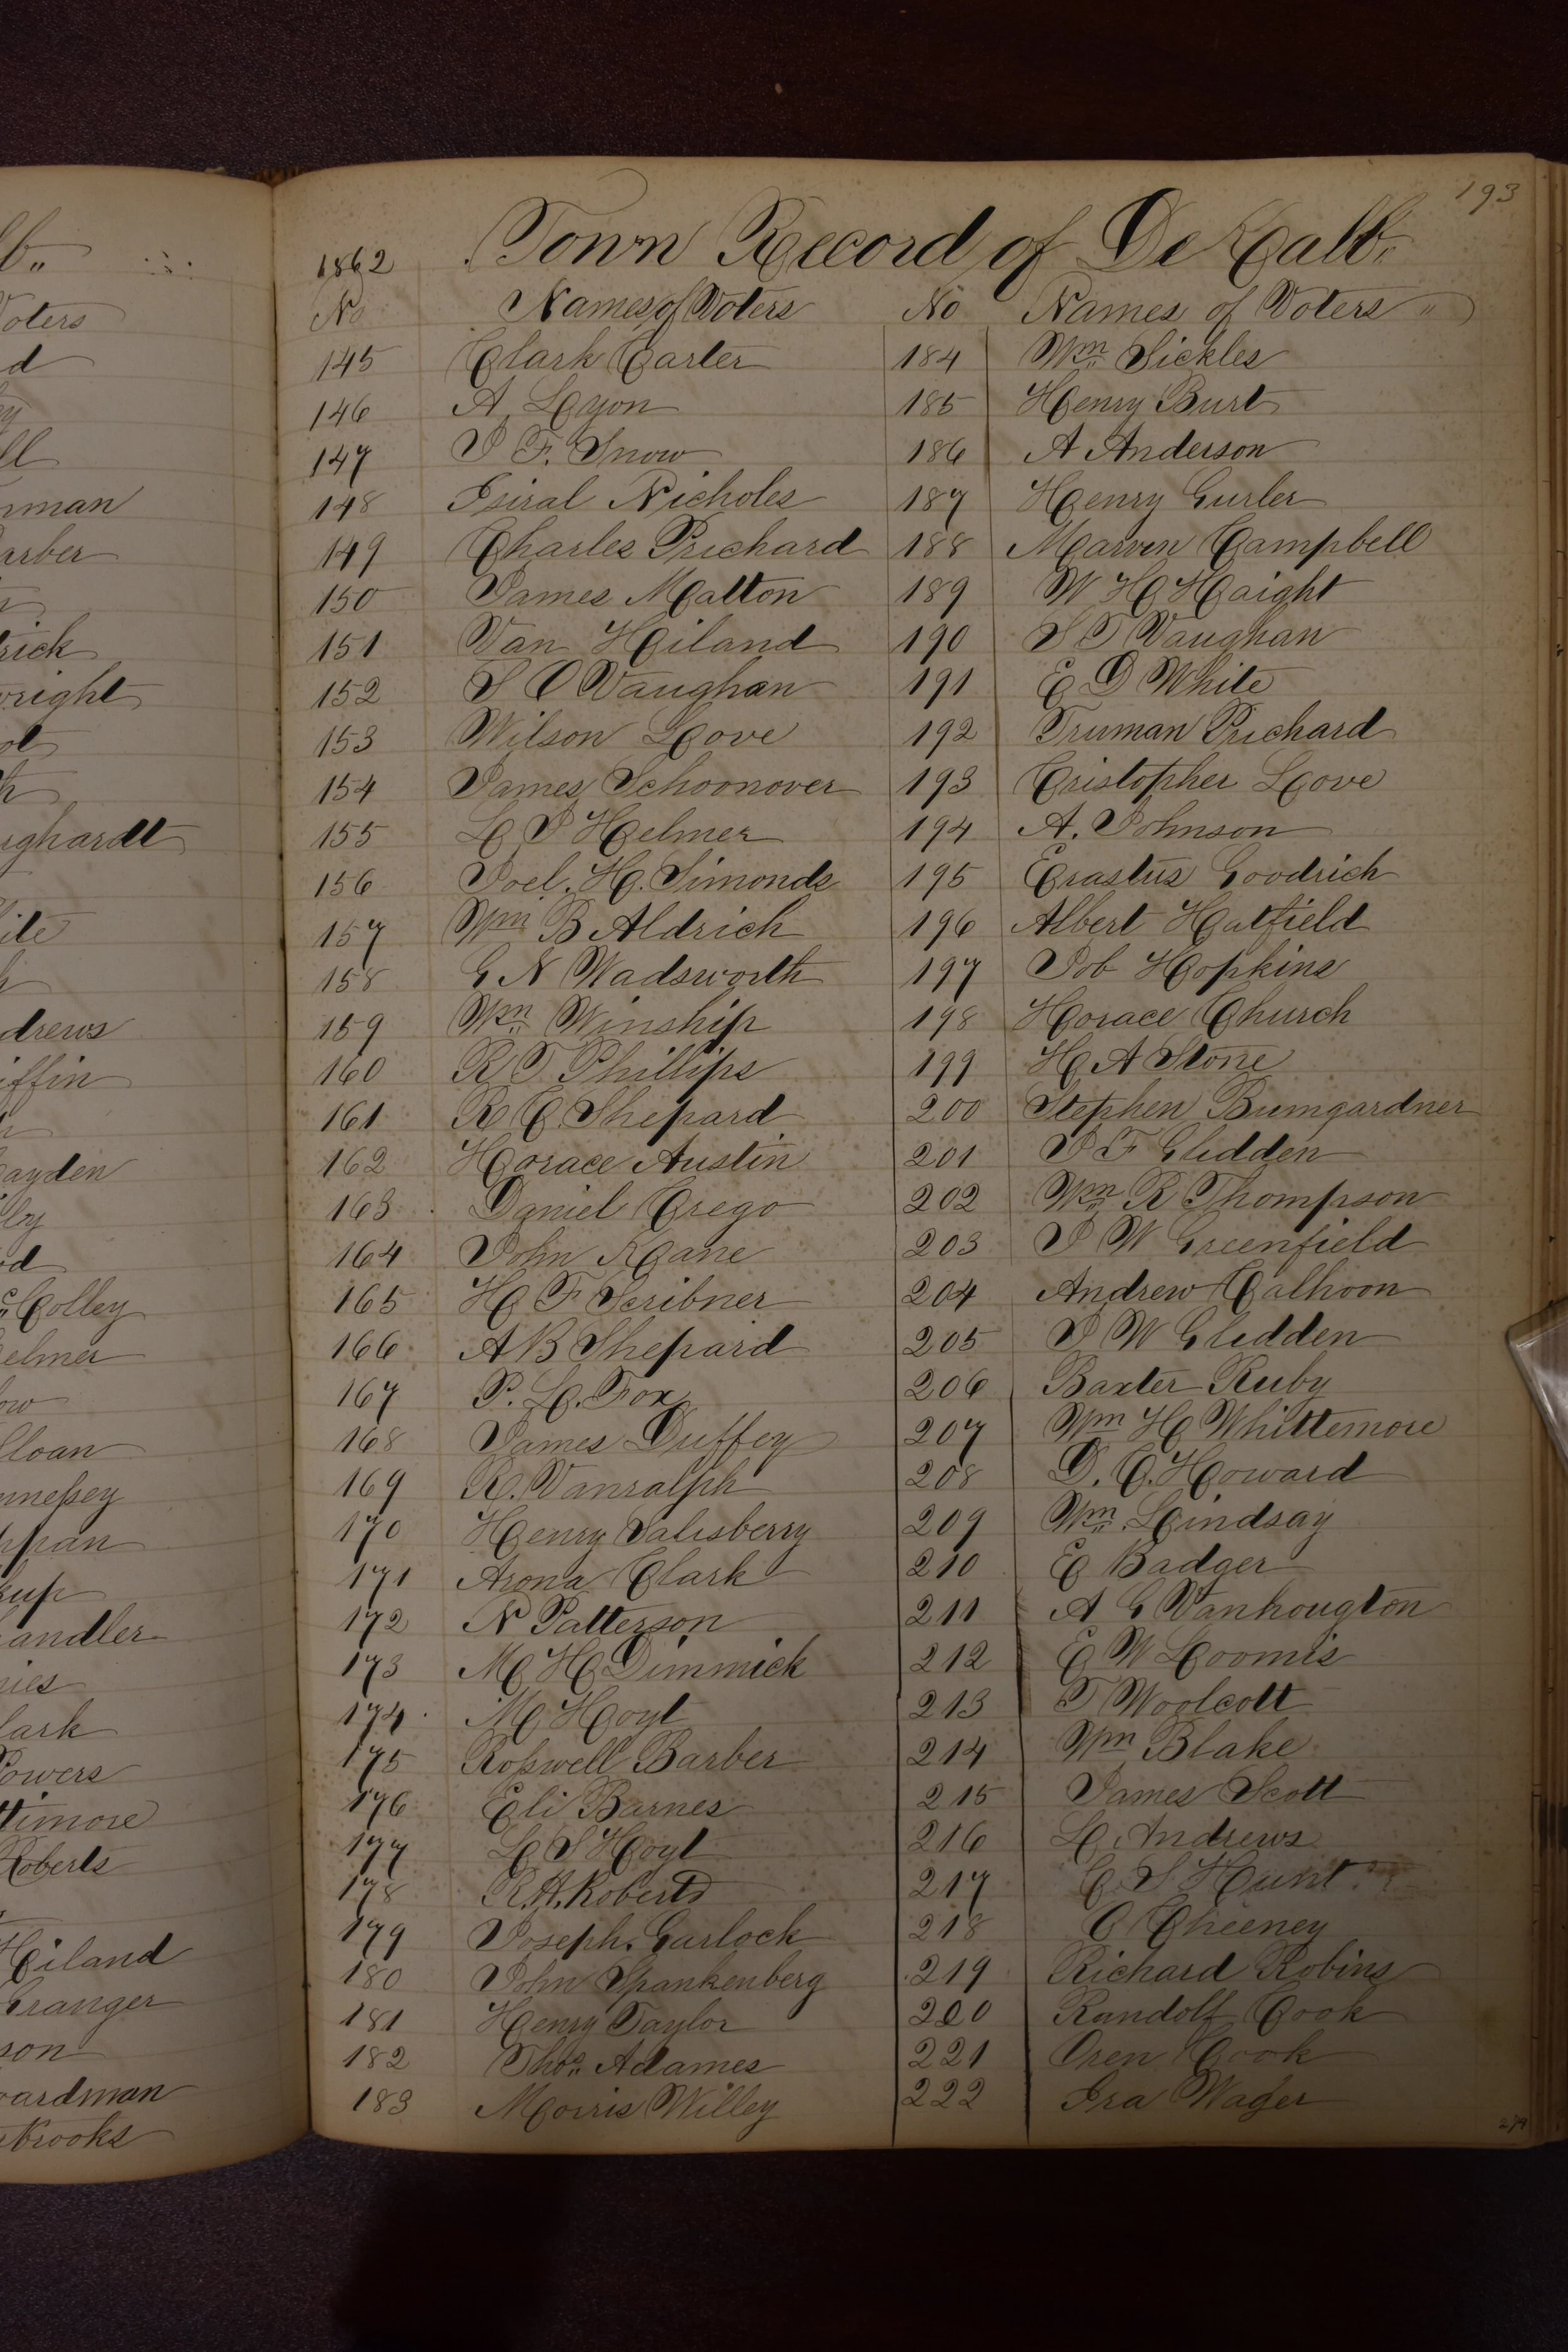 193
1862 Town Record of De Kalb
No Names of Voters No Names of Voters
145 Clark Carter 184 Wm Sickles
146 A. Lyon 185 Henry Burt
147 J F. Snow 186 A Anderson
148 Isiral Nicholes 187 Henry Gurler
149 Charles Prichard 188 Marven Campbell
150 James Malton 189 W H Haight
151 Van Hiland 190 S T Vaughan
152 S O Vaughan 191 E D White
153 Wilson Love 192 Truman Prichard
154 James Schoonover 193 Cristopher Love
155 L J Helmer 194 A. Johnson
156 Joel. H. Simonds 195 Erastus Goodrich
157 Wm B Aldrich 196 Albert Hatfield
158 G N Wadsworth 197 Job Hopkins
159 Wm Winship 198 Horace Church
160 R T Phillips 199 H A Stone
161 R C Shepard 200 Stephen Bumgardner
162 Horace Austin 201 J F Glidden
163 Daniel Crego 202 Wm R Thompson
164 John Kane 203 J W Greenfield
165 H F Scribner 204 Andrew Calhoon
166 A B Shepard 205 J W Glidden
167 P. L. Fox 206 Baxter Ruby
168 James Duffey 207 Wm H Whittemore
169 R. Vanralph 208 D. C. Howard
170 Henry Salisberry 209 Wm Lindsay
171 Arona Clark 210 E Badger
172 N Patterson 211 A G Vanhougton
173 M H Dimmick 212 E W Loomis
174 M Hoyt 213 T Woolcott
175 Rosswell Barber 214 Wm Blake
176 Eli Barnes 215 James Scott
177 L S Hoyt 216 L. Andrews
178 R. H. Roberts 217 C S Hunt
179 Joseph. Garlock 218 O Cheeney
180 John Spankenberg 219 Richard Robins
181 Henry Taylor 220 Randolf Cook
182 Thos. Adames 221 Oren Cook
183 Morris Willey 222 Ira Wager